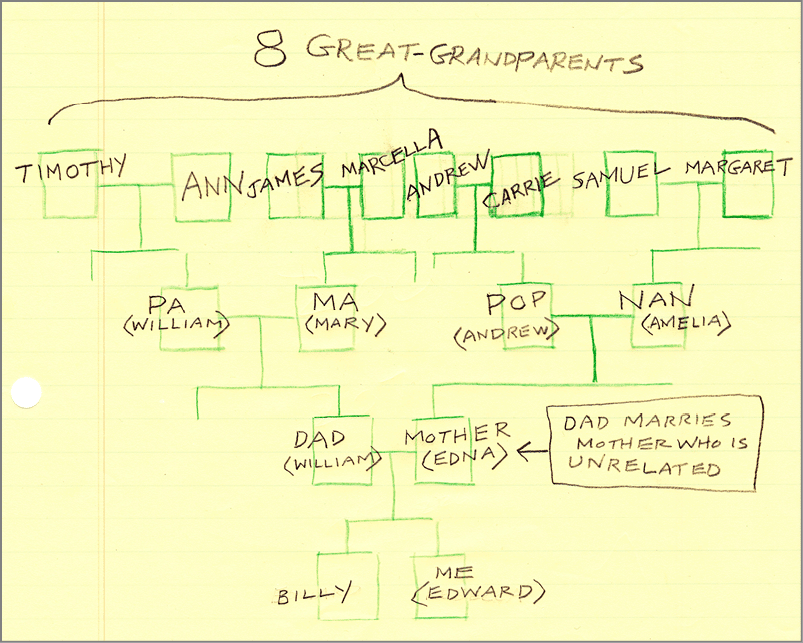 8 GREAT-GRANDPARENTS
TIMOTHY
ANN
JAMES
MARCELLA
ANDREW
CARRIE
SAMUEL
MARGARET
PA
(WILLIAM)
MA
(MARY)
POP
(ANDREW)
NAN
(AMELIA)
DAD
(WILLIAM)
MOTHER
(EDNA)
DAD MARRIES
MOTHER WHO IS
UNRELATED
BILLY
ME
(EDWARD)